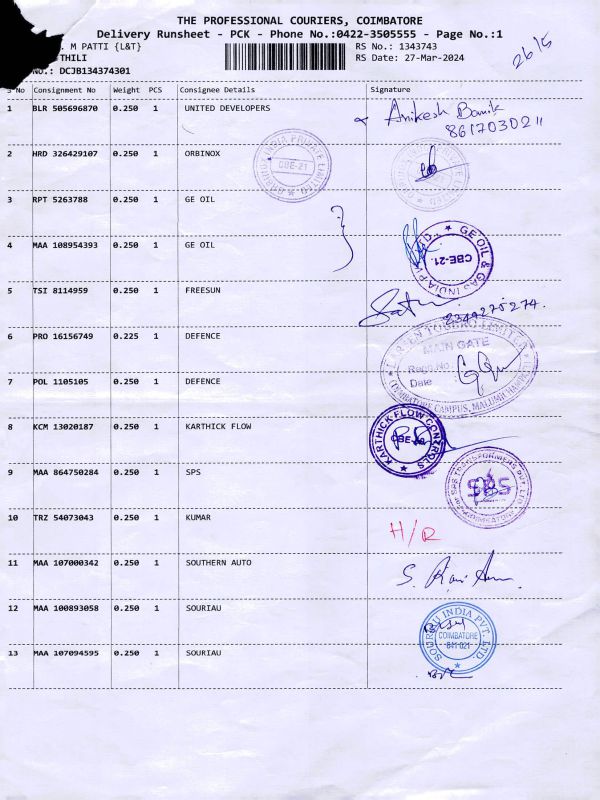 THE PROFESSIONAL COURIERS, COIMBATORE
Delivery Runsheet - PCK - Phone No.:0422-3505555 - Page No.:1
. M PATTI {L&T}
RS No.: 1343743
THILI
RS Date: 27-Mar-2024
NO.: DCJB134374301
26/5
S No Consignment No Weight PCS Consignee Details Signature
1 BLR 505696870 0.250 1 UNITED DEVELOPERS Anikesh Banik
8617030211
2 HRD 326429107 0.250 1 ORBINOX
INDIA PRIVATE LIMITED
CBE-21
3 RPT 5263788 0.250 1 GE OIL
4 MAA 108954393 0.250 1 GE OIL
GE OIL & GAS INDIA PVT. LTD.
CBE-21.
5 TSI 8114959 0.250 1 FREESUN
6 PRO 16156749 0.225 1 DEFENCE
LARSEN TOUBRO LIMITED
MAIN GATE
Regn.No
Date
COIMBATORE CAMPUS,
7 POL 1105105 0.250 1 DEFENCE
8 KCM 13020187 0.250 1 KARTHICK FLOW
KARTHICK FLOW CONTROLS
9 MAA 864750284 0.250 1 SPS
For SPS TRANSFORMERS PVT. LTD
SPS
COIMBATORE
10 TRZ 54073043 0.250 1 KUMAR H/R
11 MAA 107000342 0.250 1 SOUTHERN AUTO
12 MAA 100893058 0.250 1 SOURIAU
SOURIAU INDIA PVT. LTD
COIMBATORE
641 021
13 MAA 107094595 0.250 1 SOURIAU